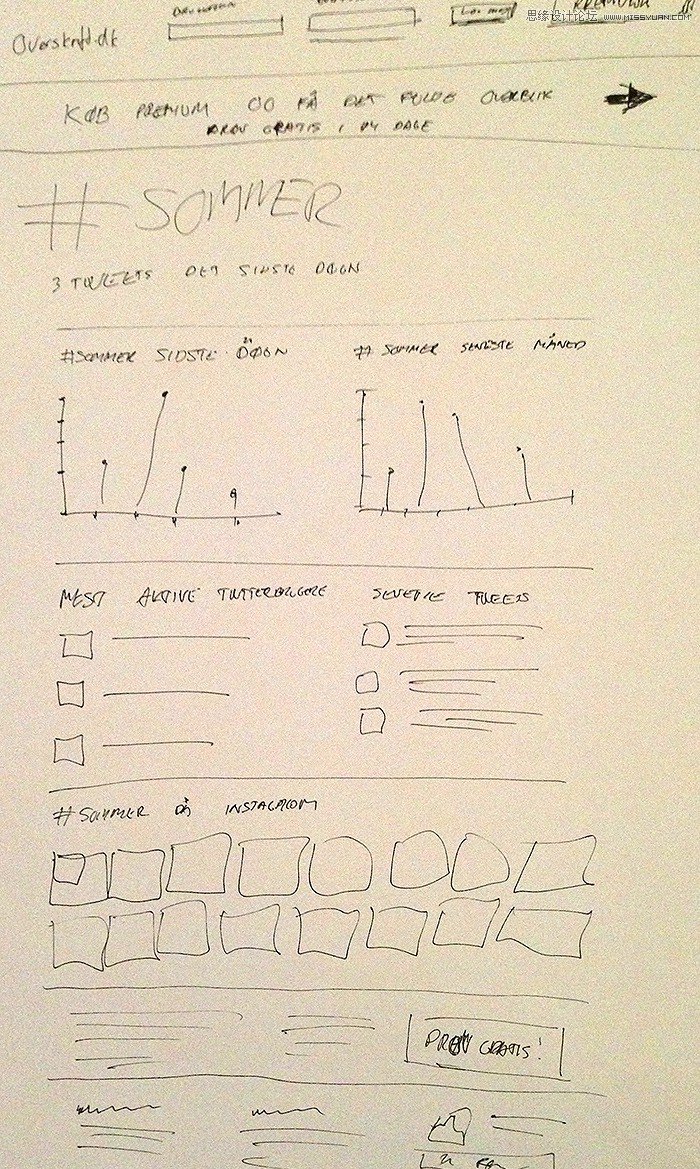 思缘设计论坛 WWW.MISSYUAN.COM
Overskrift.dk
KØB PREMIUM OG FÅ DET FULDE OVERBLIK
PRØV GRATIS I 14 DAGE
#SOMMER
3 TWEETS DET SIDSTE DØGN
#SOMMER SIDSTE DØGN
#SOMMER SENESTE MÅNED
MEST AKTIVE TWITTERBRUGERE
SENESTE TWEETS
#SOMMER PÅ INSTAGRAM
PRØV GRATIS!